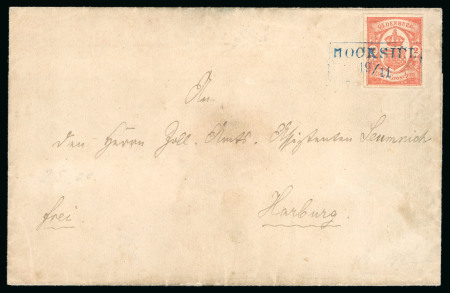 OLDENBURG
HOOKSIEL
19/11
An
den Herrn Zoll-Amts-Assistenten
frei.
Harburg.